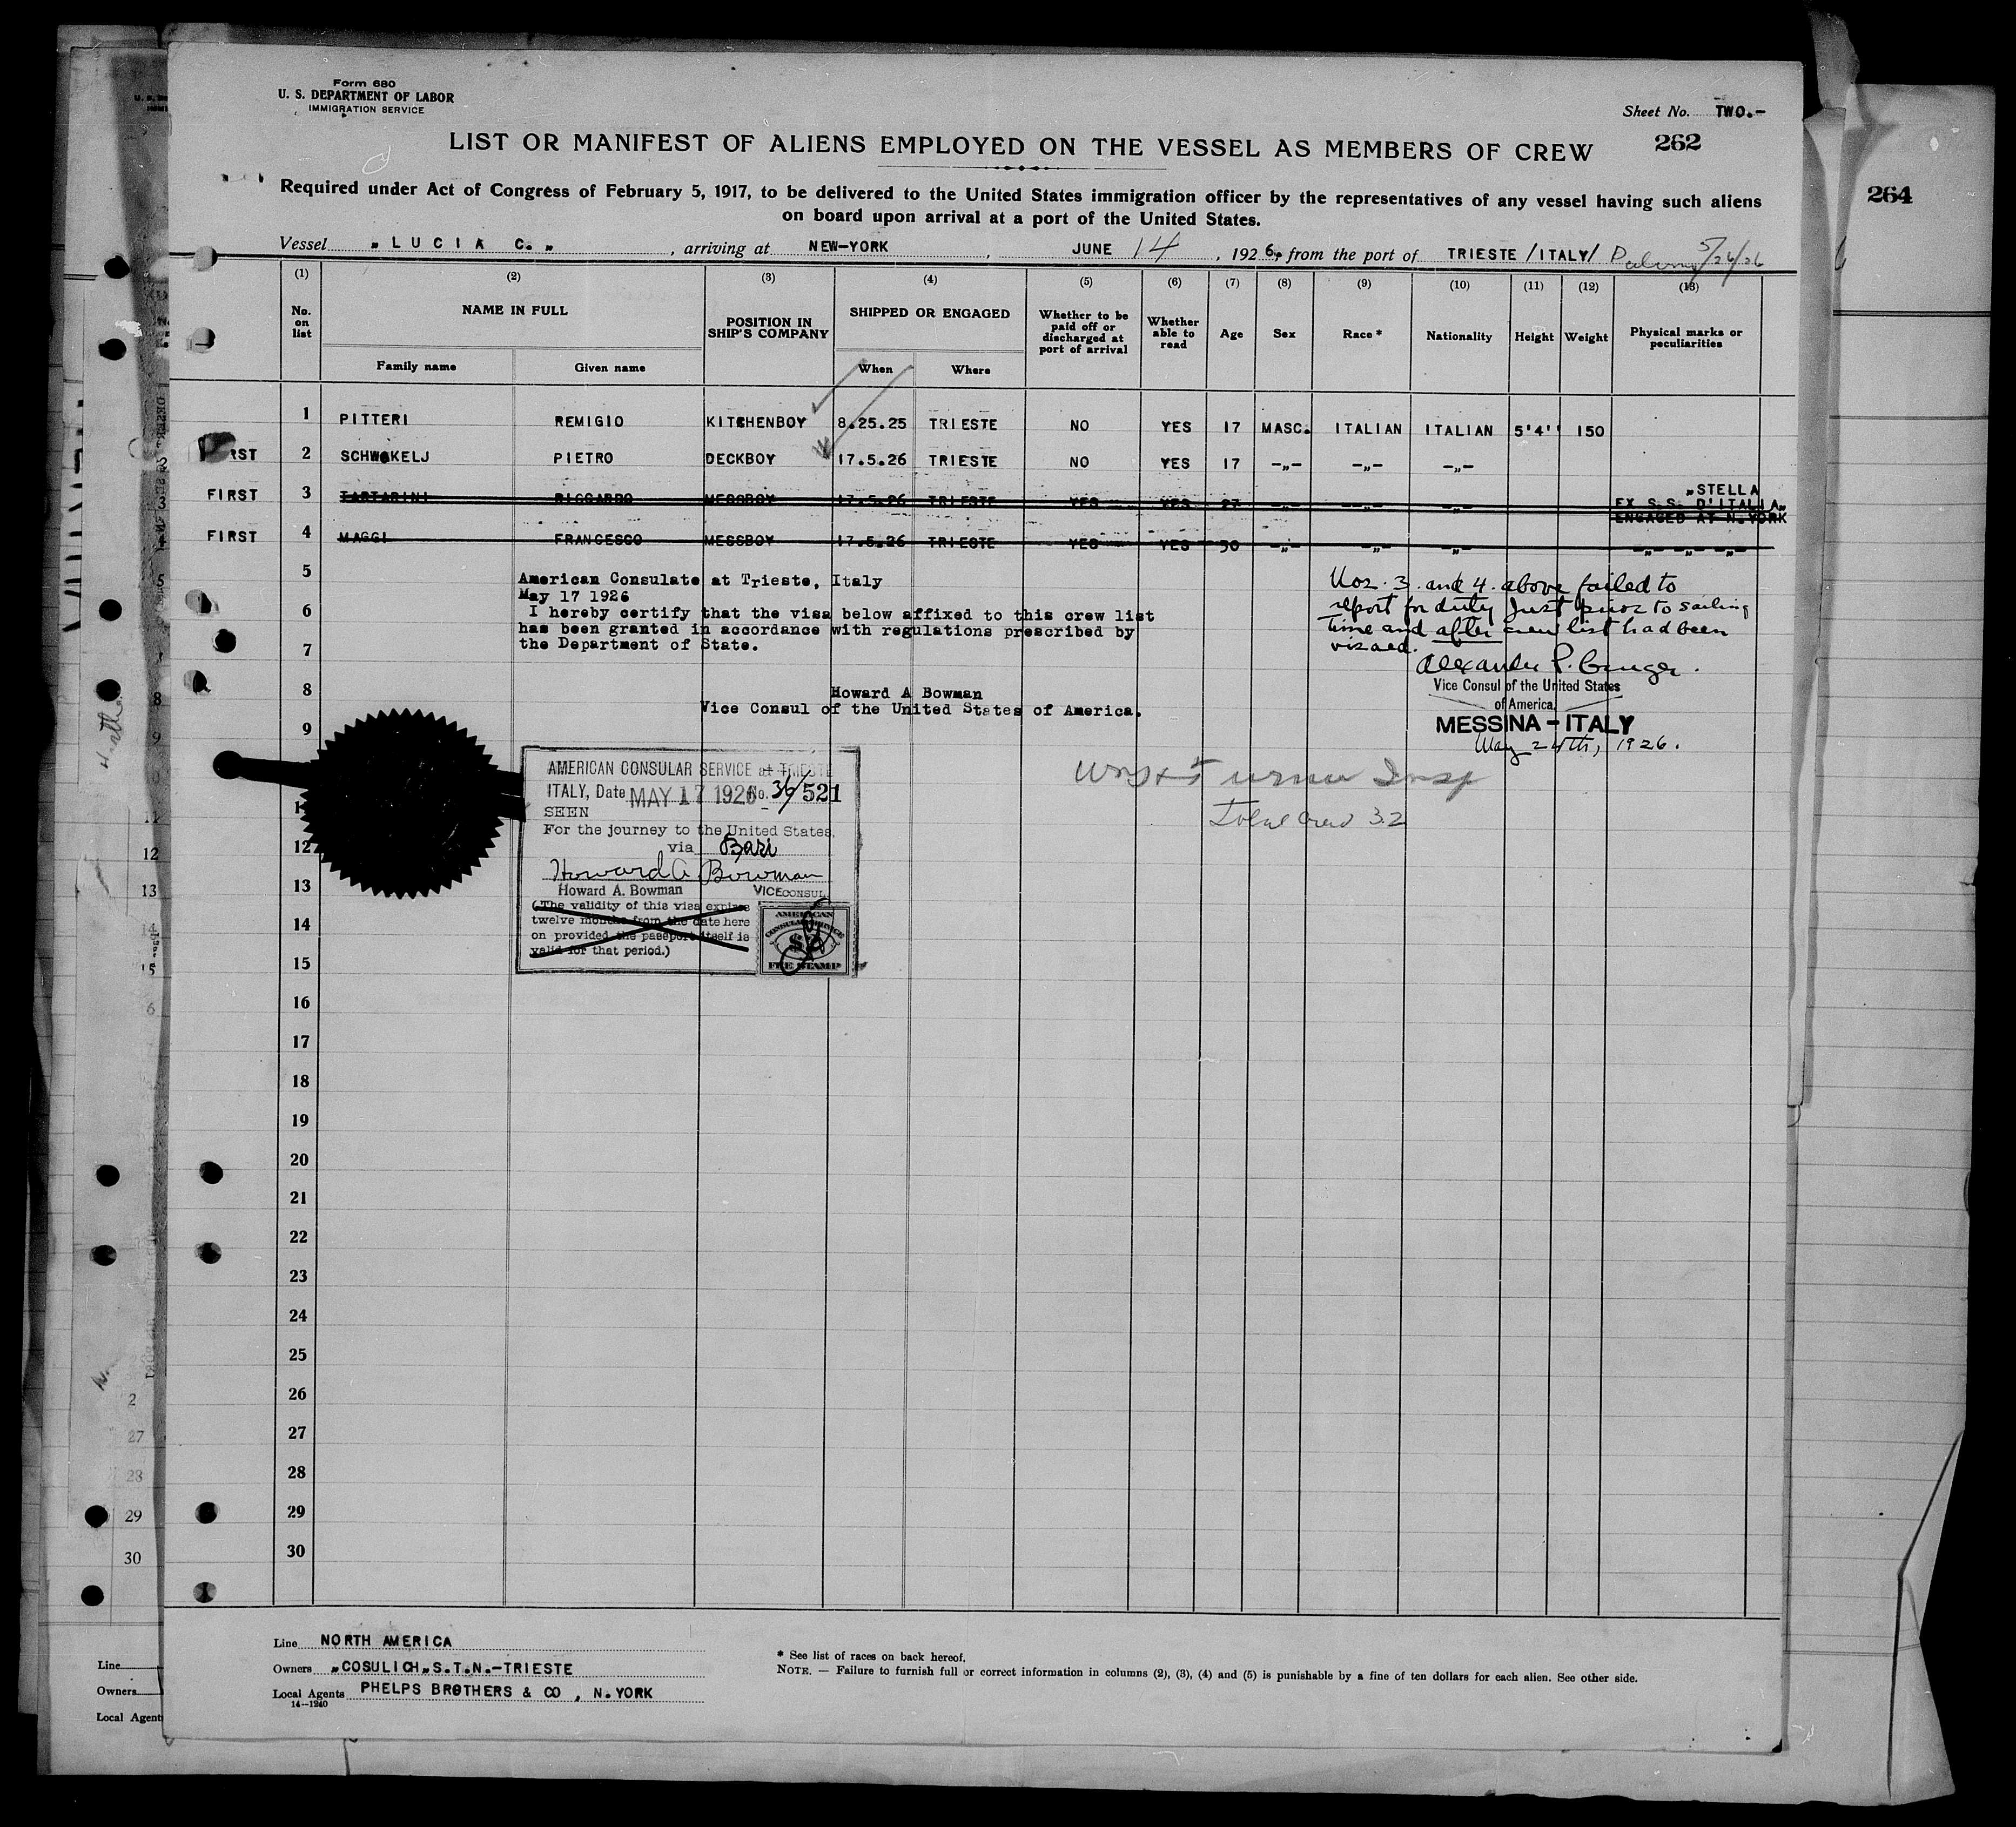 Form 680
U. S. DEPARTMENT OF LABOR
IMMIGRATION SERVICE
Sheet No. TWO.-
262
264
LIST OR MANIFEST OF ALIENS EMPLOYED ON THE VESSEL AS MEMBERS OF CREW
Required under Act of Congress of February 5, 1917, to be delivered to the United States immigration officer by the representatives of any vessel having such aliens
on board upon arrival at a port of the United States.
Vessel „LUCIA C.„, arriving at NEW-YORK, JUNE 14, 1926, from the port of TRIESTE /ITALY/ 5/26/26
(1) (2) (3) (4) (5) (6) (7) (8) (9) (10) (11) (12) (13)
No. on list
NAME IN FULL
Family name Given name
POSITION IN SHIP'S COMPANY
SHIPPED OR ENGAGED
When Where
Whether to be paid off or discharged at port of arrival
Whether able to read
Age Sex Race * Nationality Height Weight
Physical marks or peculiarities
1 PITTERI REMIGIO KITCHENBOY 8.25.25 TRIESTE NO YES 17 MASC. ITALIAN ITALIAN 5'4'' 150
RST 2 SCHWOKELJ PIETRO DECKBOY 17.5.26 TRIESTE NO YES 17 -„- -„- -„-
FIRST 3 TARTARINI RICCARDO MESSBOY 17.5.26 TRIESTE YES YES 27 -„- -„- -„- „STELLA
EX S.S. D'ITALIA„
ENGAGED AT N.YORK
FIRST 4 MAGGI FRANCESCO MESSBOY 17.5.26 TRIESTE YES YES 30 -„- -„- -„- -„- -„- -„-
5
6
7
8
9
11
12
13
14
15
16
17
18
19
20
21
22
23
24
25
26
27
28
29
30
American Consulate at Trieste, Italy
May 17 1926
I hereby certify that the visa below affixed to this crew list
has been granted in accordance with regulations prescribed by
the Department of State.
Howard A Bowman
Vice Consul of the United States of America.
Nos. 3 and 4 above failed to
report for duty just prior to sailing
time and after crew list had been
visaed.
Vice Consul of the United States
of America,
MESSINA - ITALY
May 24th, 1926.
Total Crew 32
AMERICAN CONSULAR SERVICE at TRIESTE
ITALY, Date MAY 17 1926 No. 36/521
SEEN
For the journey to the United States,
via Bari
Howard A. Bowman
Howard A. Bowman VICE CONSUL
(The validity of this visa expires
twelve months from the date here
on provided the passport itself is
valid for that period.)
AMERICAN
CONSULAR SERVICE
FEE STAMP
Line NORTH AMERICA
Owners „COSULICH„S.T.N.-TRIESTE
Local Agents PHELPS BROTHERS & CO , N.YORK
14-1240
* See list of races on back hereof.
NOTE. — Failure to furnish full or correct information in columns (2), (3), (4) and (5) is punishable by a fine of ten dollars for each alien. See other side.
Line
Owners
Local Agent